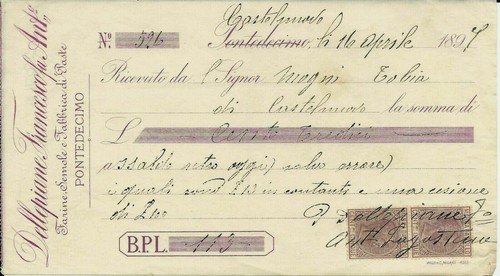 Dellepiane Francesco fu Ant.º
Farine, Semole e Fabbrica di Paste
PONTEDECIMO
Castelnuovo
N.º 526 Pontedecimo, li 16 Aprile 1897
Ricevuto da l Signor Mogni Tobia
di Castelnuovo la somma di
L. Cento Tredici
a saldo retro oggi (salvo errore)
i quali sono £ 13 in contante e una cessione
di £ 100
B.P.L. 113